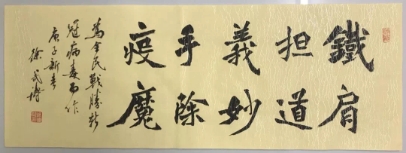 鐵肩
担道
義妙
手除
疫魔
為全民戰勝新
冠病毒而作
庚子新春
徐武増